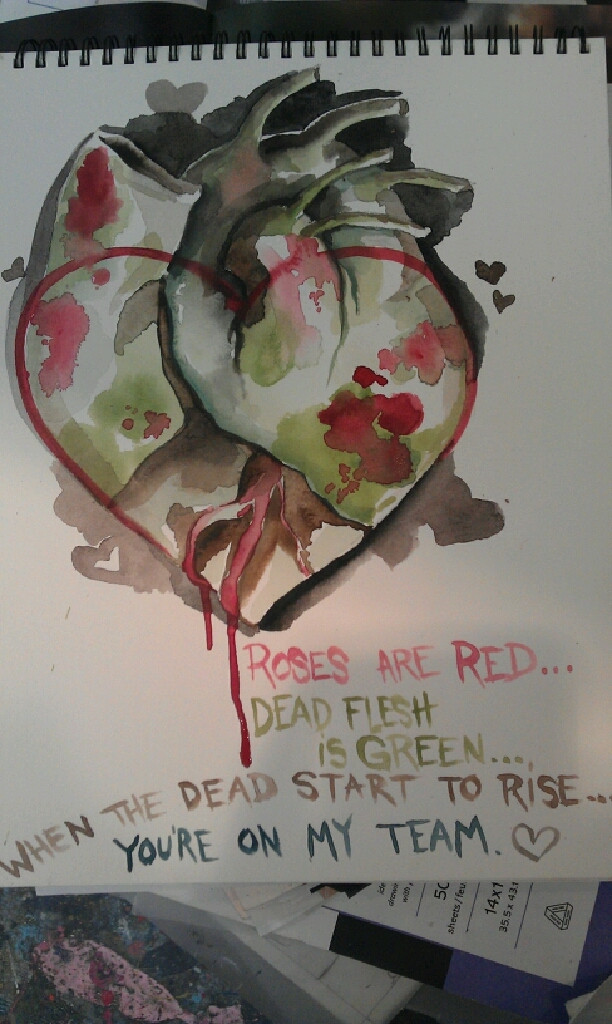 ROSES ARE RED...
DEAD FLESH
IS GREEN....,
WHEN THE DEAD START TO RISE...
YOU'RE ON MY TEAM.
50
sheets/feu
14x1
35.5 x 43.1